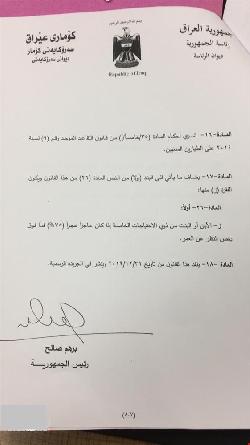 بسم الله الرحمن الرحيم
جمهورية العراق
رئاسة الجمهورية
ديوان الرئاسة
كۆماری عێراق
سەرۆکایەتی کۆمار
دیوانی سەرۆکایەتی
Republic of Iraq
المادة-١٦- تسري احكام المادة (٣٥/خامساً) من قانون التقاعد الموحد رقم (٩) لسنة
٢٠١٤ على الطيارين المدنيين.
المادة-١٧- يضاف ما يأتي الى البند من نص المادة من هذا القانون ويكون
الفقرة (ز) منها:
المادة-٢٦- أولاً:
ز-الأبن أو البنت من ذوي الاحتياجات الخاصة إذا كان عاجزاً عجزاً (٧٥%) فما فوق
بغض النظر عن العمر.
المادة-١٨- ينفذ هذا القانون من تاريخ ٢٠١٩/١٢/٣١ وينشر في الجريدة الرسمية.
برهم صالح
رئيس الجمهورية